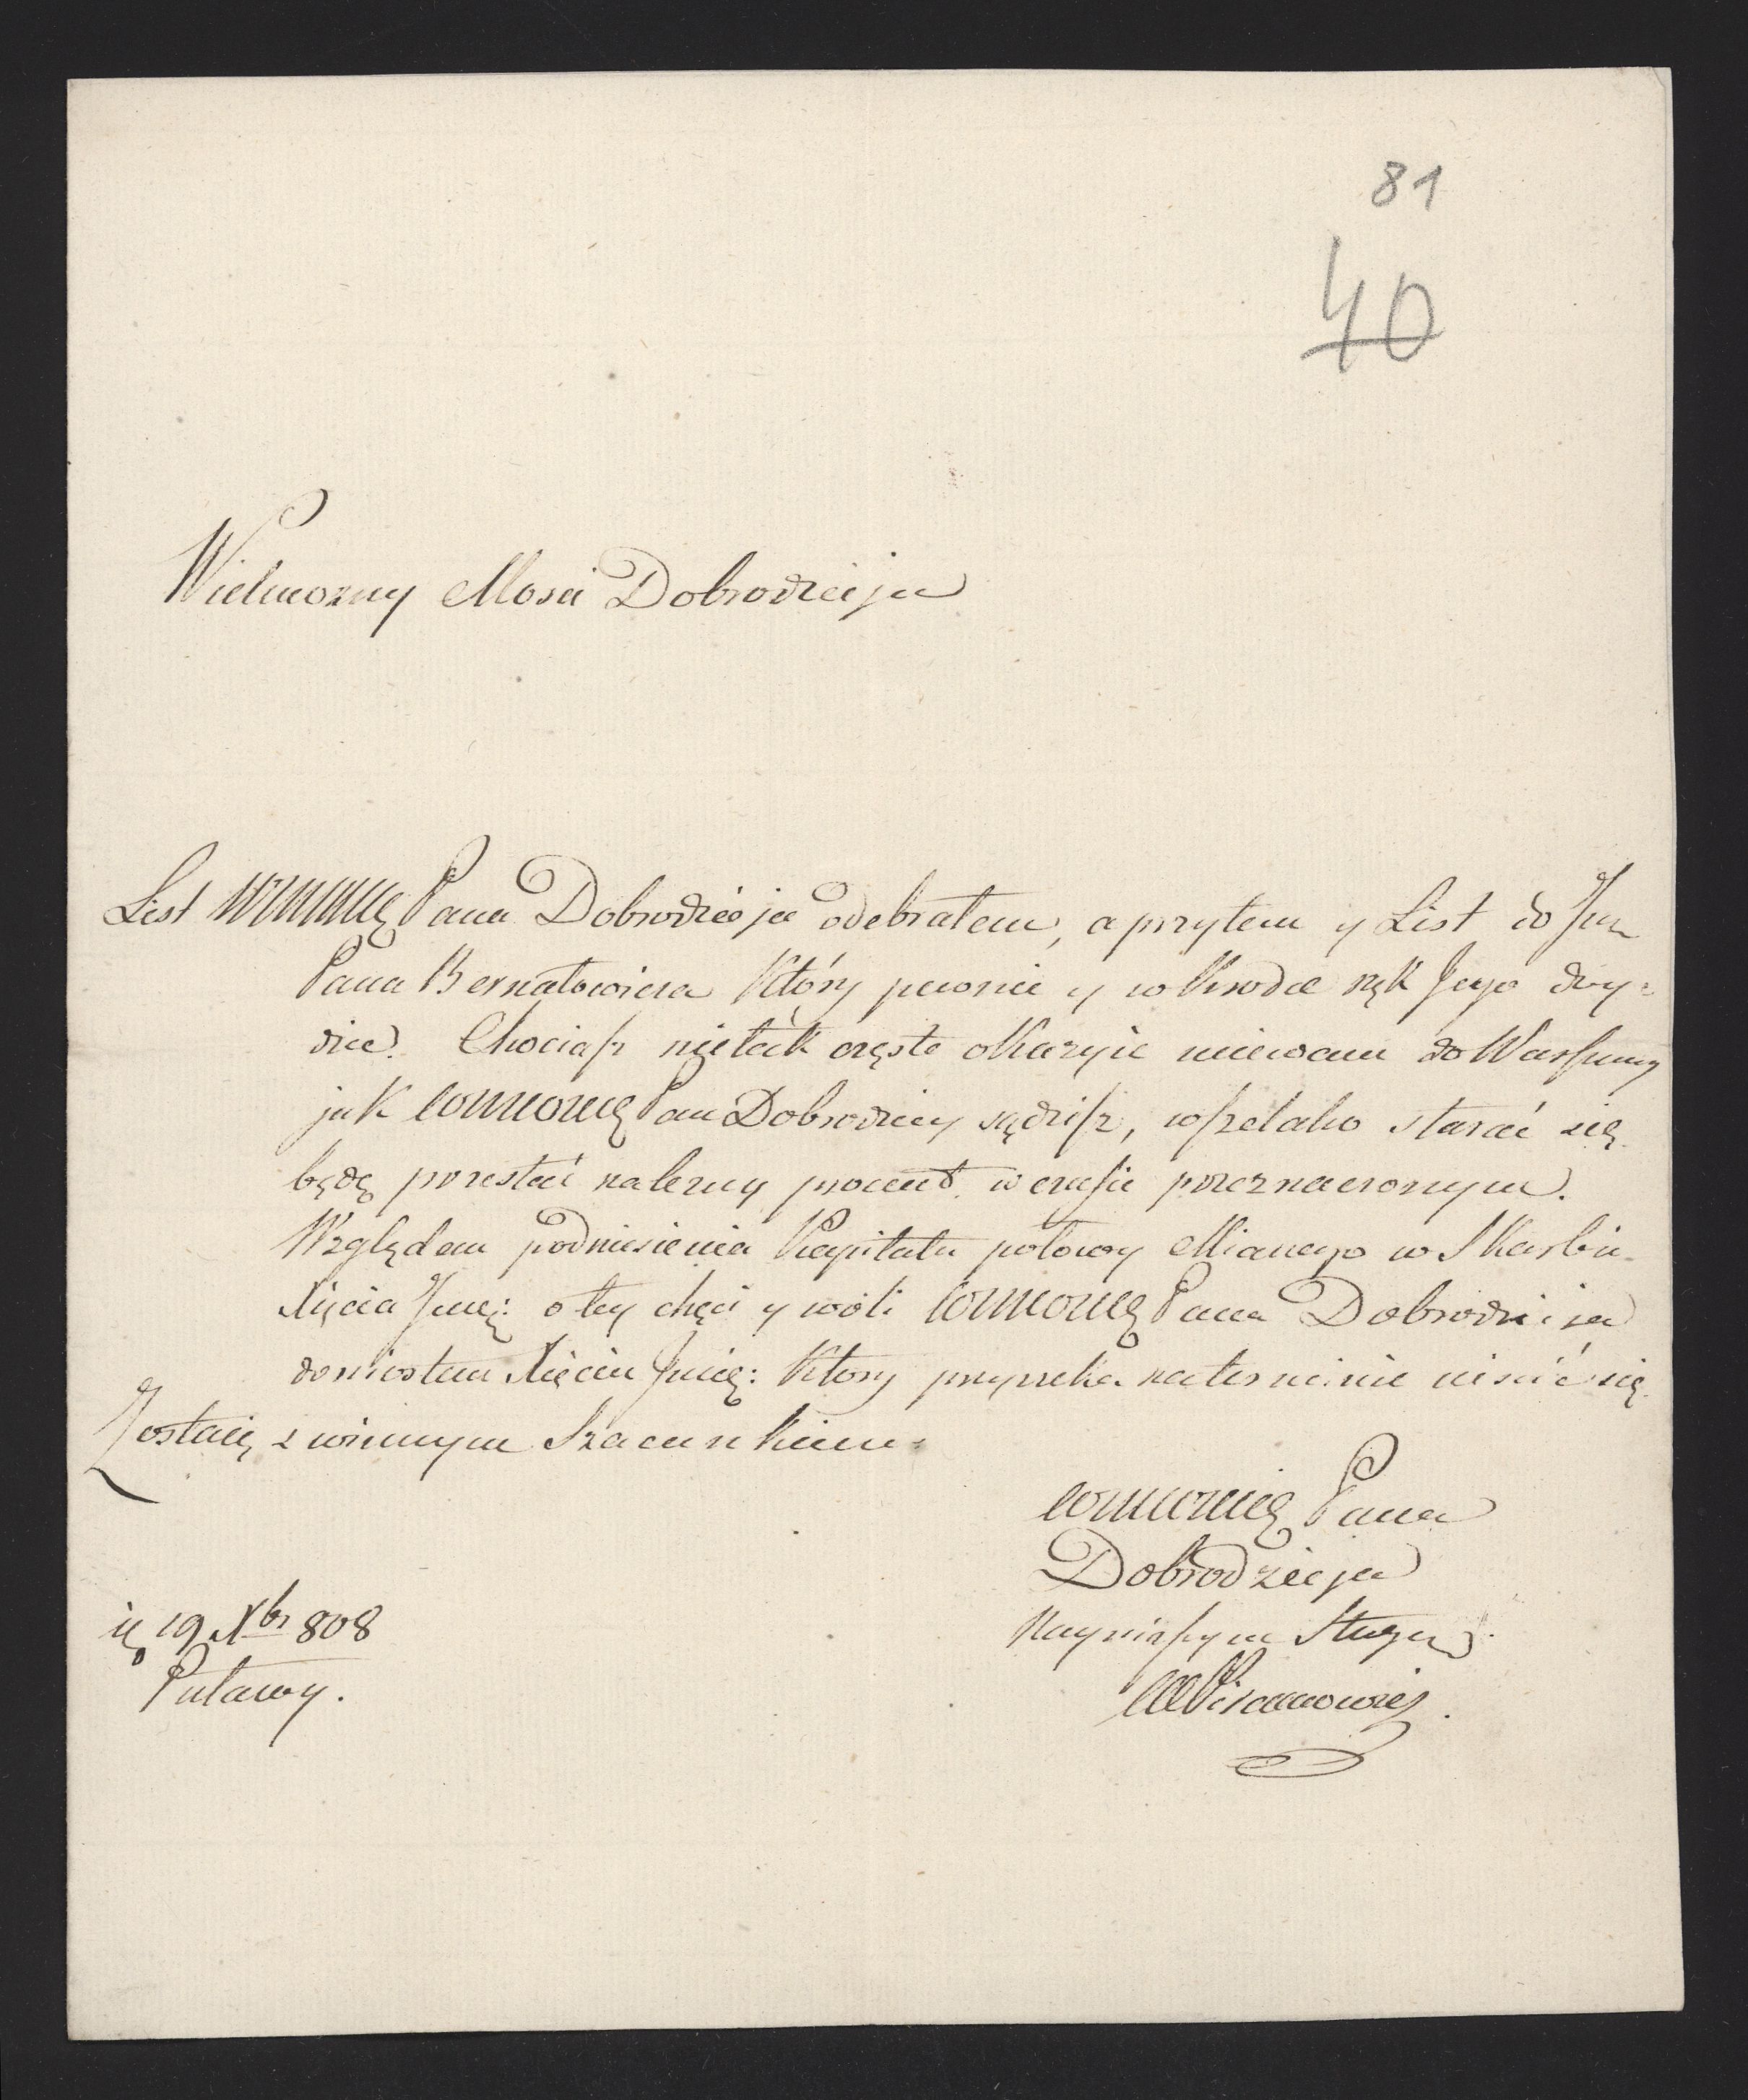 81
40
Wielmozny Mosci Dobrodzieju
List Pana Dobrodzieja odebrałem, a przytem y List do Jm
Pana Bernatowicza Który pewnie y wkrodce rąk Jego doy=
dzie. Chociasz nietak częste okazyie miewam do Warszawy
jak WWMoneg Pan Dobrodziey sądzisz, wszelako starać się
będę przesłać należny procent w czasie przeznaczonym.
Względem podniesienia Kapitału połowy Mianego w Skarbie
Xięcia Jmci: o tey chęci y woli Pana Dobrodzieja
doniosłem Xięciu Jmci: Ktory przyrzeka na terminie uiścić się
Zostaię z winnym Szacunkiem
Pana
Dobrodzieja
Nayniższym Sługą
19 Xbr 808
Puławy.